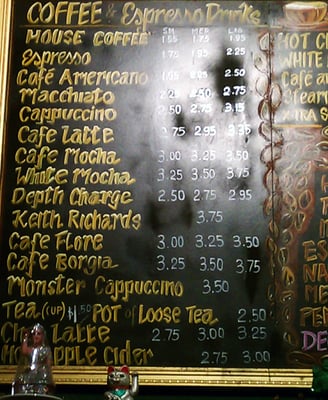 COFFEE & Espresso Drinks
SM MED LRG
HOUSE COFFEE 1.55 1.75 1.95
Espresso 1.75 1.95 2.25
Café Americano 2.50
Macchiato 2.50 2.75
Cappuccino 2.50 2.75 3.15
Cafe Latte 2.75 2.95 3.35
Cafe Mocha 3.00 3.25 3.50
White Mocha 3.25 3.50 3.75
Depth Charge 2.50 2.75 2.95
Keith Richards 3.75
Cafe Flore 3.00 3.25 3.50
Cafe Borgia 3.25 3.50 3.75
Monster Cappuccino 3.50
Tea (cup) $1.50 POT of Loose Tea 2.50
Latte 2.75 3.00 3.25
Apple Cider 2.75 3.00
HOT
WHITE
Café
Steam